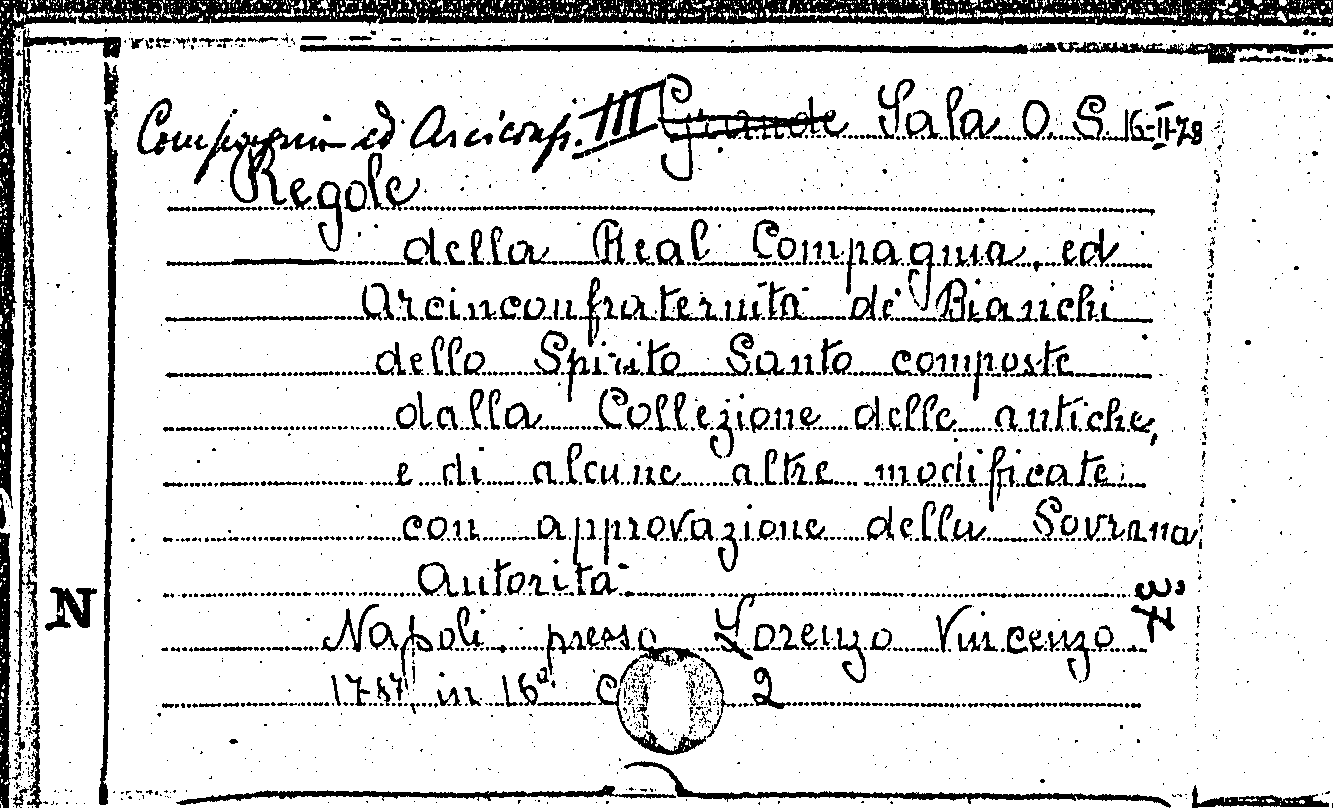 Compagnia ed Arciconf. III Grande Sala O. S. 16-II-78
Regole
della Real Compagnia, ed
Arcinconfraternità de' Bianchi
dello Spirito Santo composte
dalla Collezione delle antiche,
e di alcune altre modificate
con approvazione della Sovrana
Autorità.
N
Napoli. presso Lorenzo Vincenzo.
1787, in 16º. C 2